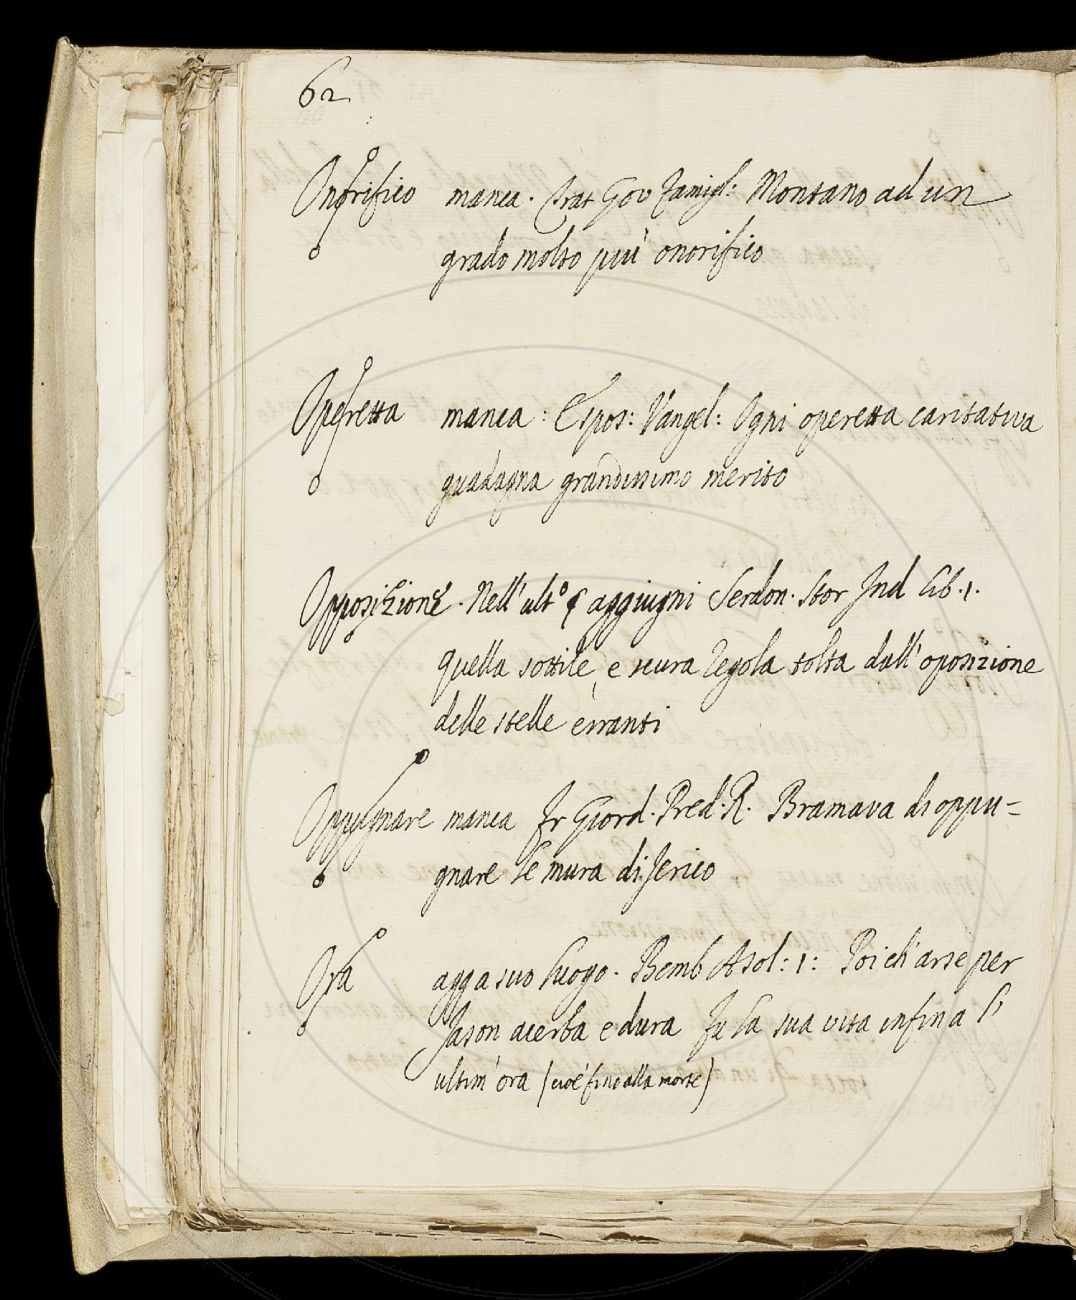 62
Onorifico manca. Trat Gov Famigl: Montano ad un
grado molto più onorifico
Operetta manca: Espos: Vangel: Ogni operetta caritativa
guadagna grandissimo merito
Opposizione. Nell'ult° § aggiugni Serdon. Stor Ind lib. 1.
quella sottile, e sicura regola tolta dall'oposizione
delle stelle erranti
Oppugnare manca Fr Giord. Pred. R. Bramava di oppu=
gnare le mura di Jerico
Ora agg a suo luogo. Bemb Asol: 1: Poich'arse per
Jason acerba e dura Fu la sua vita infina l'
ultim'ora (cioè fino alla morte)